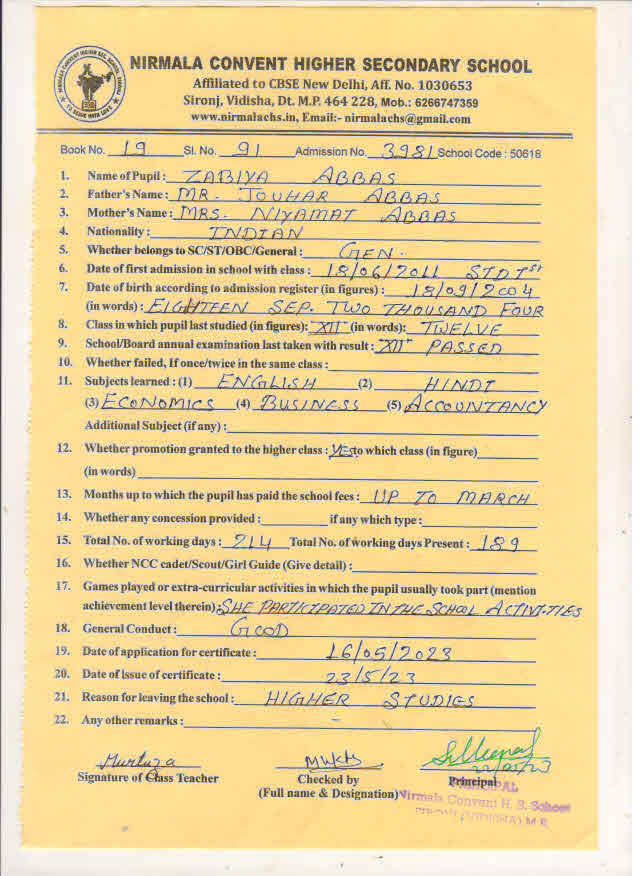 NIRMALA CONVENT HIGHER SECONDARY SCHOOL
Affiliated to CBSE New Delhi, Aff. No. 1030653
Sironj, Vidisha, Dt. M.P. 464 228, Mob.: 6266747359
www.nirmalachs.in, Email:- nirmalachs@gmail.com
Book No. 19 Sl. No. 91 Admission No. 3981 School Code : 50618
1. Name of Pupil : ZABIYA ABBAS
2. Father's Name : MR. JOUHAR ABBAS
3. Mother's Name : MRS. NIYAMAT ABBAS
4. Nationality : INDIAN
5. Whether belongs to SC/ST/OBC/General : GEN.
6. Date of first admission in school with class : 18/06/2011 STD I st
7. Date of birth according to admission register (in figures) : 18/09/2004
(in words) : EIGHTEEN SEP. TWO THOUSAND FOUR
8. Class in which pupil last studied (in figures): "XII" (in words): TWELVE
9. School/Board annual examination last taken with result : "XII" PASSED
10. Whether failed, If once/twice in the same class :
11. Subjects learned : (1) ENGLISH (2) HINDI
(3) ECONOMICS (4) BUSINESS (5) ACCOUNTANCY
Additional Subject (if any) :
12. Whether promotion granted to the higher class : YES to which class (in figure)
(in words)
13. Months up to which the pupil has paid the school fees : UP TO MARCH
14. Whether any concession provided : if any which type :
15. Total No. of working days : 214 Total No. of working days Present : 189
16. Whether NCC cadet/Scout/Girl Guide (Give detail) :
17. Games played or extra-curricular activities in which the pupil usually took part (mention
achievement level therein) : SHE PARTICIPATED IN THE SCHOOL ACTIVITIES
18. General Conduct : GOOD
19. Date of application for certificate : 16/05/2023
20. Date of Issue of certificate : 23/5/23
21. Reason for leaving the school : HIGHER STUDIES
22. Any other remarks : –
Murtuza
Signature of Class Teacher Checked by Principal
(Full name & Designation)
PRINCIPAL
Nirmala Convent H. S. School
SIRONJ (VIDISHA) M.P.